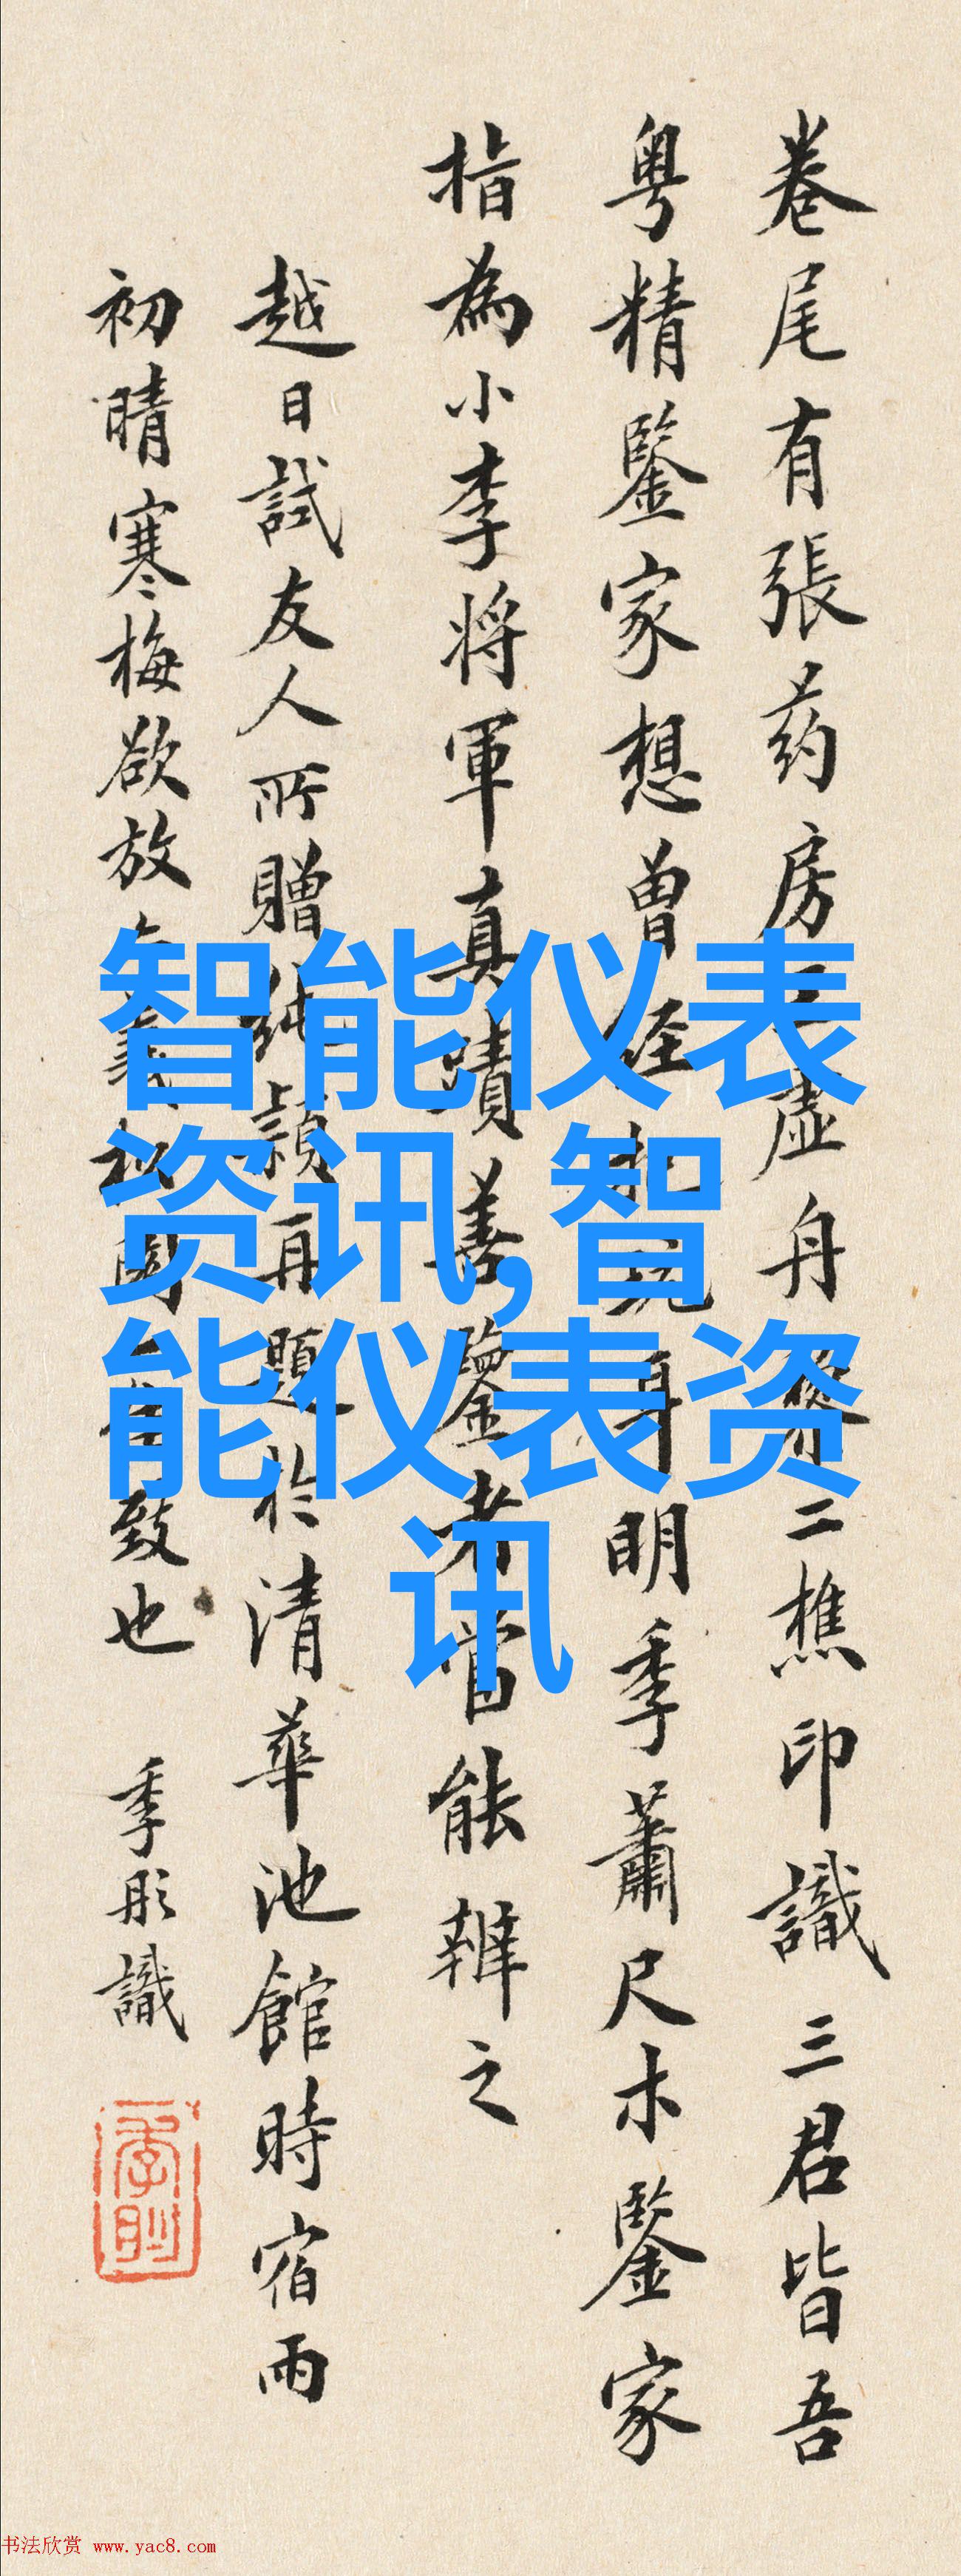 卷尾有張药房虚舟二樵印識三君皆吾
粤精鑒家想曾经明季蕭尺木鑒家
指為小李将軍真蹟善鑒者當能辨之
越日試友人所贈純穎再題於清華池館時宿雨
初晴寒梅欲放致也 季彤識
智能仪表
资讯,智
能仪表资
讯
书法欣赏 www.yac8.com